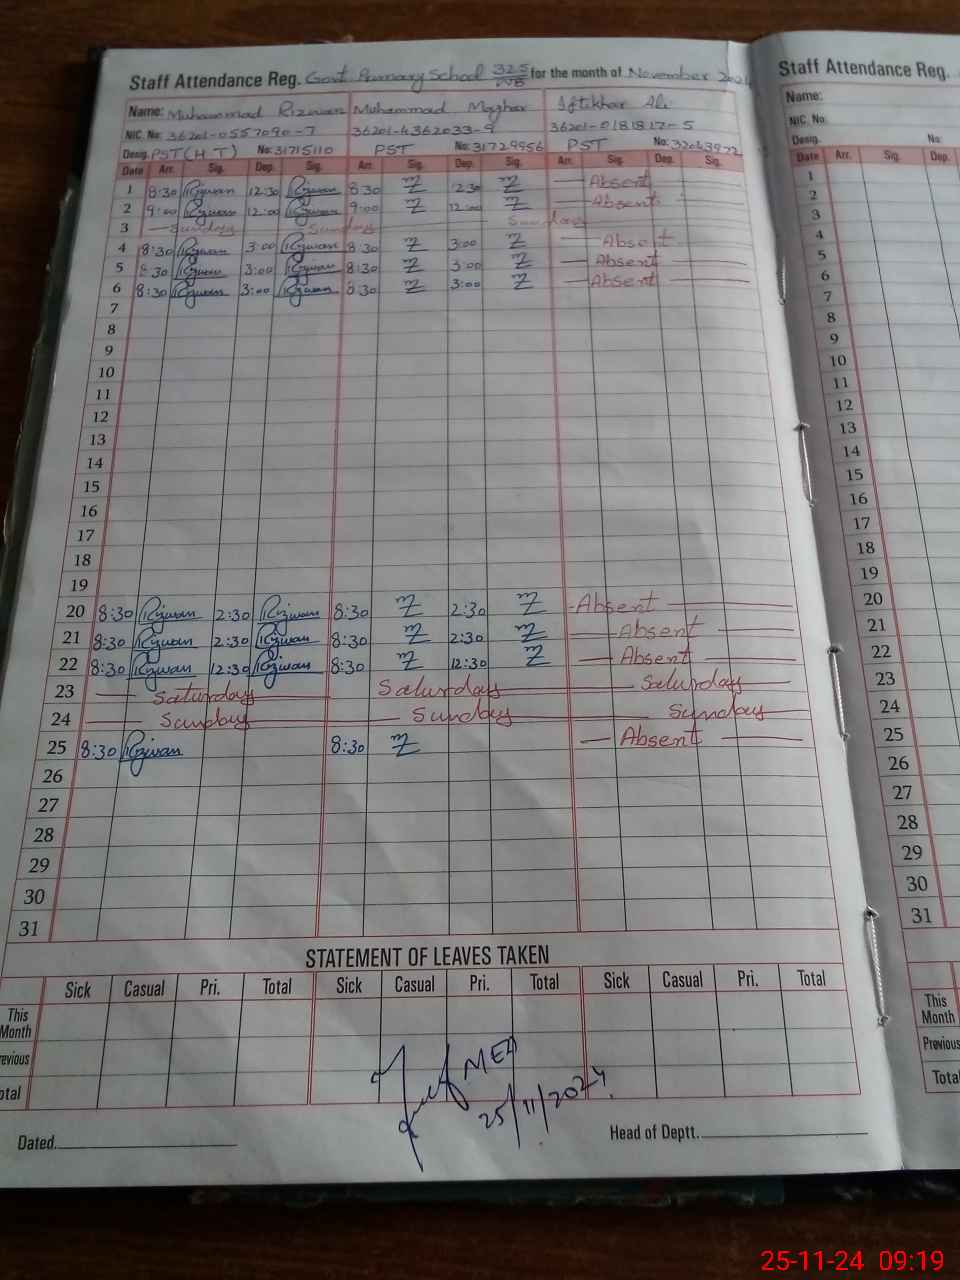 Staff Attendance Reg. Govt Primary School 325/WB for the month of November 2024
Name: Muhammad Rizwan Muhammad Mazhar Iftikhar Ali
NIC. No: 36201-0557090-7 36201-4362033-9 36201-0181817-5
Desig. PST(H.T) No: 31715110 PST No: 31729956 PST No:
Date Arr. Sig. Dep. Sig. Arr. Sig. Dep. Sig. Arr. Sig. Dep. Sig.
1 8:30 Rizwan 12:30 Rizwan 8:30 12:30 Absent
2 9:00 Rizwan 12:00 Rizwan 9:00 12:00 Absent
3 Sunday Sunday Sunday
4 8:30 Rizwan 3:00 Rizwan 8:30 3:00 Absent
5 8:30 Rizwan 3:00 Rizwan 8:30 3:00 Absent
6 8:30 Rizwan 3:00 Rizwan 8:30 3:00 Absent
7
8
9
10
11
12
13
14
15
16
17
18
19
20 8:30 Rizwan 2:30 Rizwan 8:30 2:30 Absent
21 8:30 Rizwan 2:30 Rizwan 8:30 2:30 Absent
22 8:30 Rizwan 12:30 Rizwan 8:30 12:30 Absent
23 Saturday Saturday Saturday
24 Sunday Sunday Sunday
25 8:30 Rizwan 8:30 Absent
26
27
28
29
30
31
STATEMENT OF LEAVES TAKEN
Sick Casual Pri. Total Sick Casual Pri. Total Sick Casual Pri. Total
This Month
revious
otal
MEA
25/11/2024
Dated. Head of Deptt.
Staff Attendance Reg.
Name:
NIC. No.
Desig. No:
Date Arr. Sig. Dep.
1
2
3
4
5
6
7
8
9
10
11
12
13
14
15
16
17
18
19
20
21
22
23
24
25
26
27
28
29
30
31
This Month
Previous
Total
25-11-24 09:19